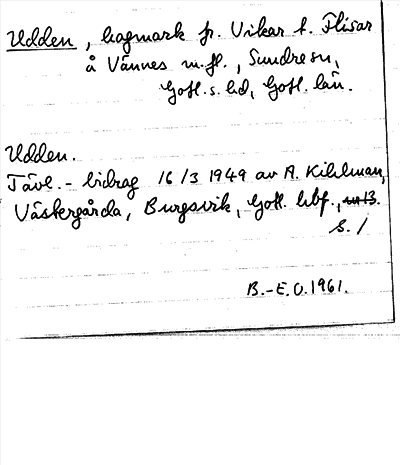 Udden, hagmark fr. Vikar t. Flisar
å Vännes m.fl., Sundre sn,
Gotl. s. hd, Gotl. län.
Udden.
Tävl.-bidrag 16/3 1949 av A. Kihlman,
Västergårda, Burgsvik, Gotl. hbf.,
s. 1
B.-E.O. 1961.